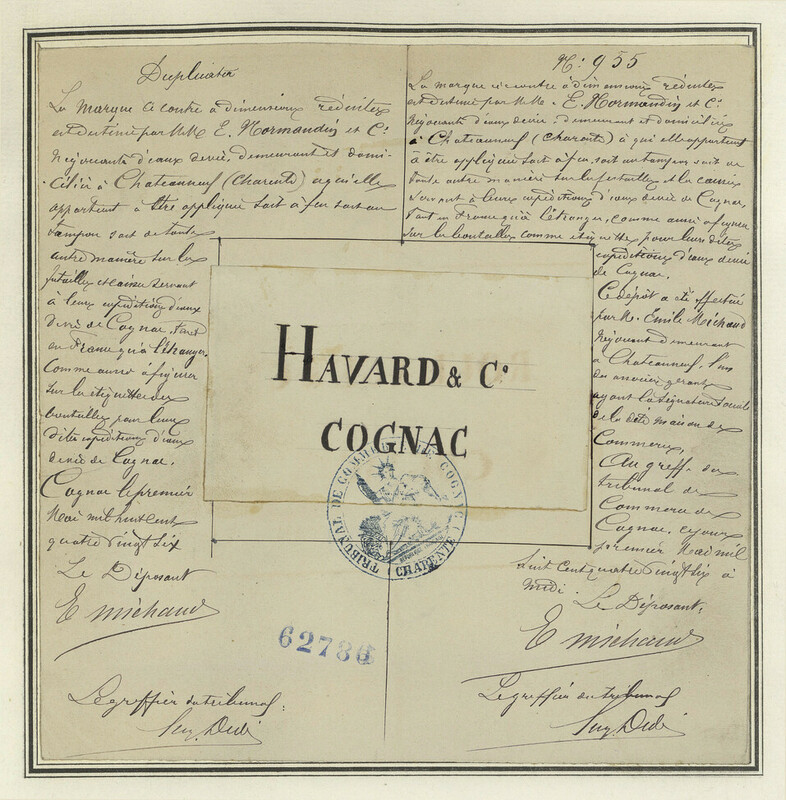 Duplicata
La marque ci contre à dimensions réduites
est destiné par M.M. E. Normandin et Cº
Négociants d'eaux devie, demeurant et domi-
-ciliés à Chateauneuf (Charente) a qui elle
appartient à être appliqué soit à feu soit au
tampon soit de toute
autre manière sur les
futailles et caisses servant
à leurs expéditions d'eaux
devie de Cognac, tant
en France qu'à l'étranger,
Comme aussi à figurer
sur les étiquettes des
bouteilles pour leurs
dites expéditions d'eaux
devie de Cognac.
Cognac le premier
Mai mil huit cent
quatre vingt six
Le Déposant
E Michaud
Le greffier du tribunal:
Nº 955
La marque ci contre à dimensions réduites
est destiné par M.M. E. Normandin et Cº
Négociants d'eaux devie, demeurant et domiciliés
à Chateauneuf (Charente) à qui elle appartient
à être appliqué soit à feu, soit au tampon soit de
toute autre manière sur les futailles et les caisses
servant à leurs expéditions d'eaux devie de Cognac,
tant en France qu'à l'étranger, comme aussi à figurer
sur les bouteilles comme étiquettes pour leurs dites
expéditions d'eaux devie
de Cognac.
Ce dépôt a été effectué
par M. Emile Michaud
Négociant demeurant
à Chateauneuf, l'un
des associés gérant
ayant la signature sociale
de la dite maison de
Commerce,
Au greffe du
tribunal de
Commerce de
Cognac, ce jour
premier Mai mil
huit cent quatre vingt six à
midi. Le Déposant:
E Michaud
Le greffier du tribunal:
HAVARD & Cº
COGNAC
TRIBUNAL DE COMMERCE DE COGNAC
CHARENTE
62786